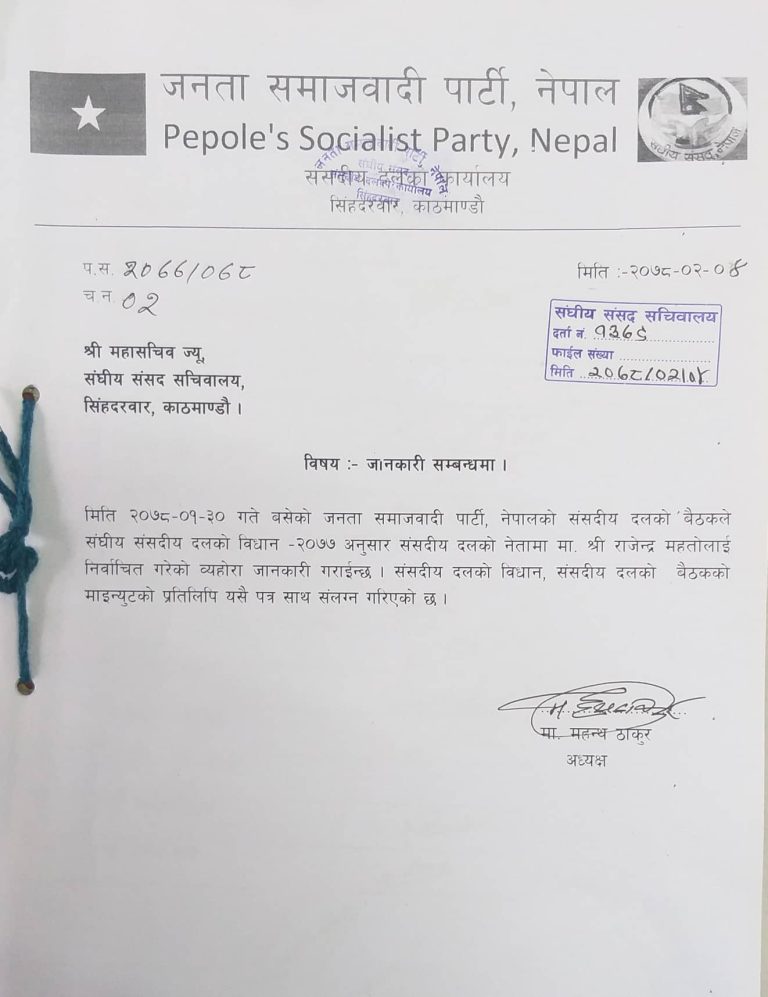 जनता समाजवादी पार्टी, नेपाल
Pepole's Socialist Party, Nepal
संसदीय दलको कार्यालय
सिंहदरवार, काठमाण्डौ
संघीय संसद, नेपाल
प.स. २०७७/०७८
च.न. ०२
मिति :-२०७८-०२-०४
संघीय संसद सचिवालय
दर्ता नं.
फाईल संख्या
मिति २०७८/०२/०४
श्री महासचिव ज्यू,
संघीय संसद सचिवालय,
सिंहदरवार, काठमाण्डौ ।
विषय :- जानकारी सम्बन्धमा ।
मिति २०७८-०१-३० गते बसेको जनता समाजवादी पार्टी, नेपालको संसदीय दलको बैठकले
संघीय संसदीय दलको विधान -२०७७ अनुसार संसदीय दलको नेतामा मा. श्री राजेन्द्र महतोलाई
निर्वाचित गरेको व्यहोरा जानकारी गराईन्छ । संसदीय दलको विधान, संसदीय दलको बैठकको
माइन्युटको प्रतिलिपि यसै पत्र साथ संलग्न गरिएको छ ।
मा. महन्थ ठाकुर
अध्यक्ष